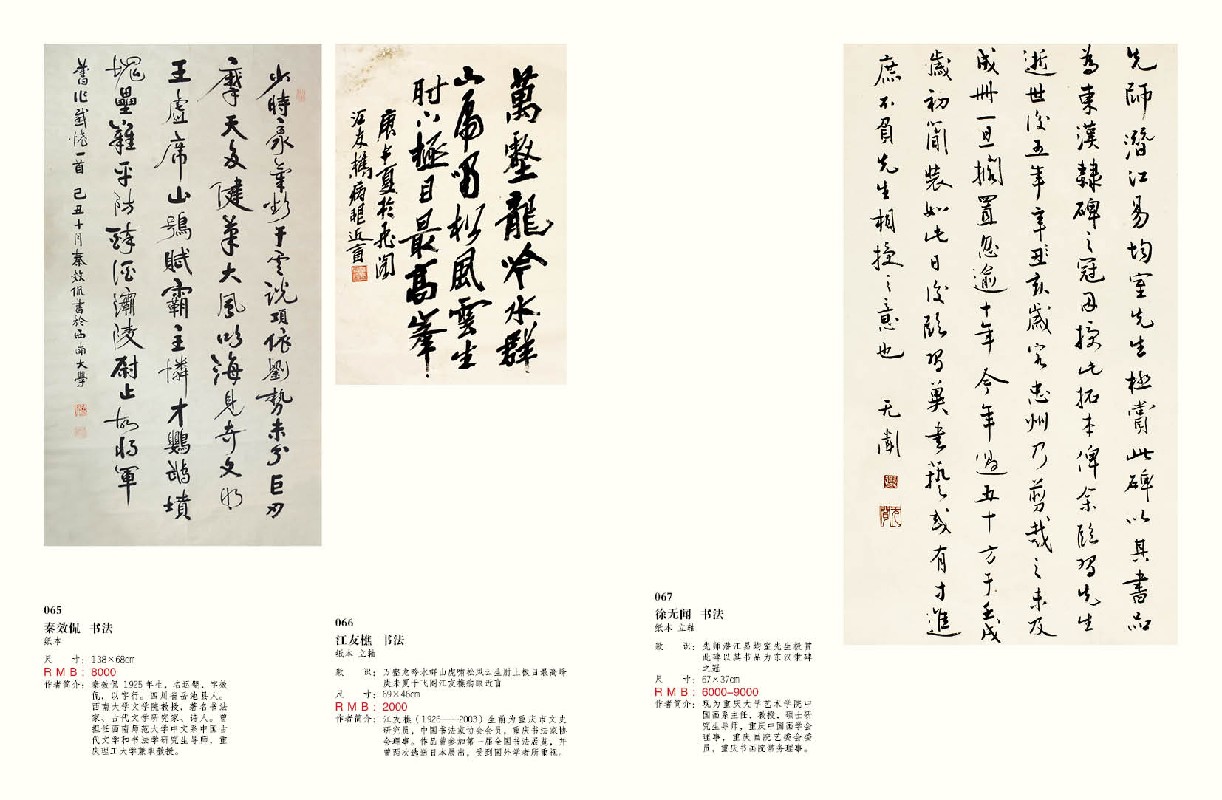 少時豪氣彩干雲說項依劉勢未分巨刃
摩天多健筆大風吹海見奇文明
王虛席山鴞賦霸主憐才鸚鵡墳
塊壘難平防醉酒灞陵尉止故將軍
舊作感懷一首 己丑十月秦效侃書於西南大學
萬壑龍吟水群
山虎嘯松風雲生
肘下極目最高峯
庚午夏於飛閣
江友樵病眼近盲
先師潛江易均室先生極賞此碑以其書品
為東漢隸碑之冠因授此拓本俾余臨習先生
逝世後五年辛亥歲客忠州乃剪裁之未及
成冊一旦擱置忽逾十年今年過五十方于壬戌
歲初簡裝如此日後臨習冀書藝或有寸進
庶不負先生相授之意也 无聞
065
秦效侃 书法
纸本
尺 寸：138×68cm
RMB：8000
作者简介：秦效侃 1925年生，
侃，以字行。四川省岳池县人。
西南大学文学院教授，著名书法
家、古代文学研究家、诗人。曾
担任西南师范大学中文系中国古
代文学和书法学研究生导师，重
庆理工大学兼职教授。
066
江友樵 书法
纸本 立轴
款 识：万壑龙吟水群山虎啸松风云生肘下极目最高峰
庚午夏于飞阁江友樵病眼近盲
尺 寸：69×46cm
RMB：2000
作者简介：江友樵（1926——2003）生前为重庆市文史
研究员，中国书法家协会会员，重庆书法家协
会理事。作品曾参加第一届全国书法展览，并
曾两次选送日本展出，受到国外学者所重视。
067
徐无闻 书法
纸本 立轴
款 识：先师潜江易均室先生极赏
此碑以其书品为东汉隶碑
之冠
尺 寸：67×37cm
RMB：6000-9000
作者简介：现为重庆大学艺术学院中
国画系主任，教授，硕士研
究生导师，重庆中国画学会
理事，重庆画院艺委会委
员，重庆书画院常务理事。